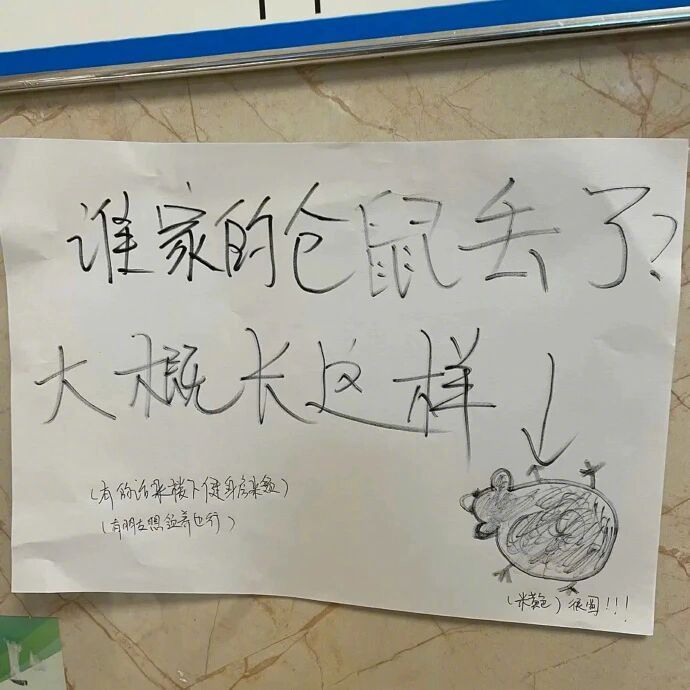 谁家的仓鼠丢了?
大概长这样
(有的话来楼下健身房来领)
(有朋友想领养也行)
(米黄色) 很圆!!!